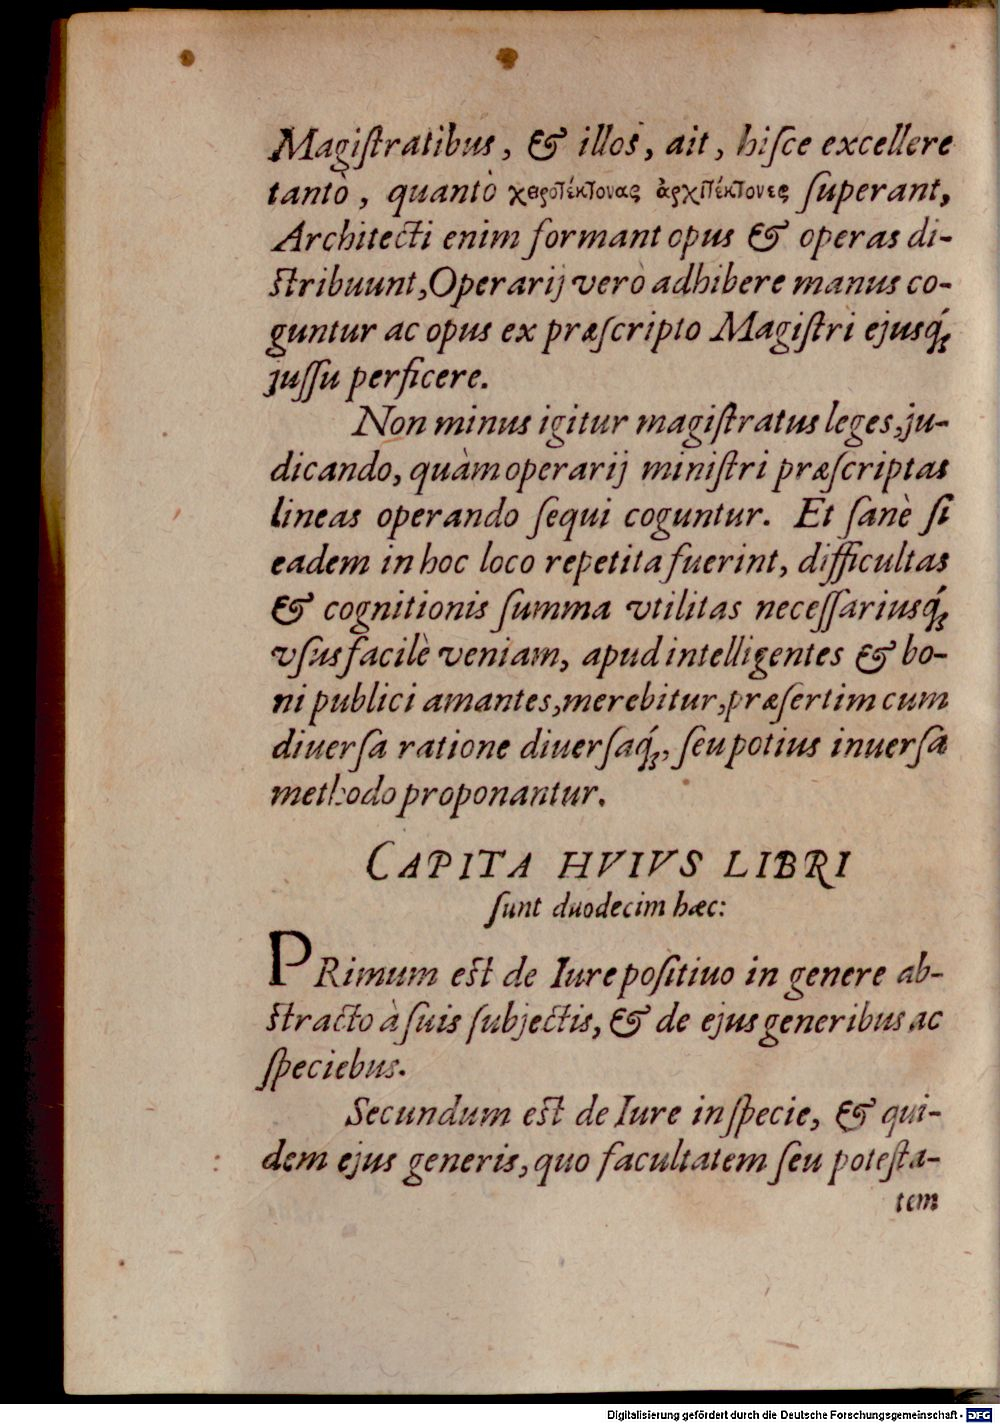 Magiſtratibus, & illos, ait, hiſce excellere
tantò, quantò χεροτέκτονας ἀρχιτέκτονες ſuperant,
Architecti enim formant opus & operas di-
ſtribuunt, Operarij verò adhibere manus co-
guntur ac opus ex præſcripto Magiſtri ejusq́;
juſſu perficere.
Non minus igitur magiſtratus leges, ju-
dicando, quàm operarij miniſtri præſcriptas
lineas operando ſequi coguntur. Et ſanè ſi
eadem in hoc loco repetita fuerint, difficultas
& cognitionis ſumma vtilitas neceſſariusq́;
vſus facilè veniam, apud intelligentes & bo-
ni publici amantes, merebitur, præſertim cum
diuerſa ratione diuerſaq́;, ſeu potius inuerſa
methodo proponantur.
CAPITA HVIVS LIBRI
ſunt duodecim hæc:
PRimum eſt de Iure poſitiuo in genere ab-
ſtracto à ſuis ſubjectis, & de ejus generibus ac
ſpeciebus.
Secundum eſt de Iure in ſpecie, & qui-
dem ejus generis, quo facultatem ſeu poteſta-
tem
Digitalisierung gefördert durch die Deutsche Forschungsgemeinschaft - DFG